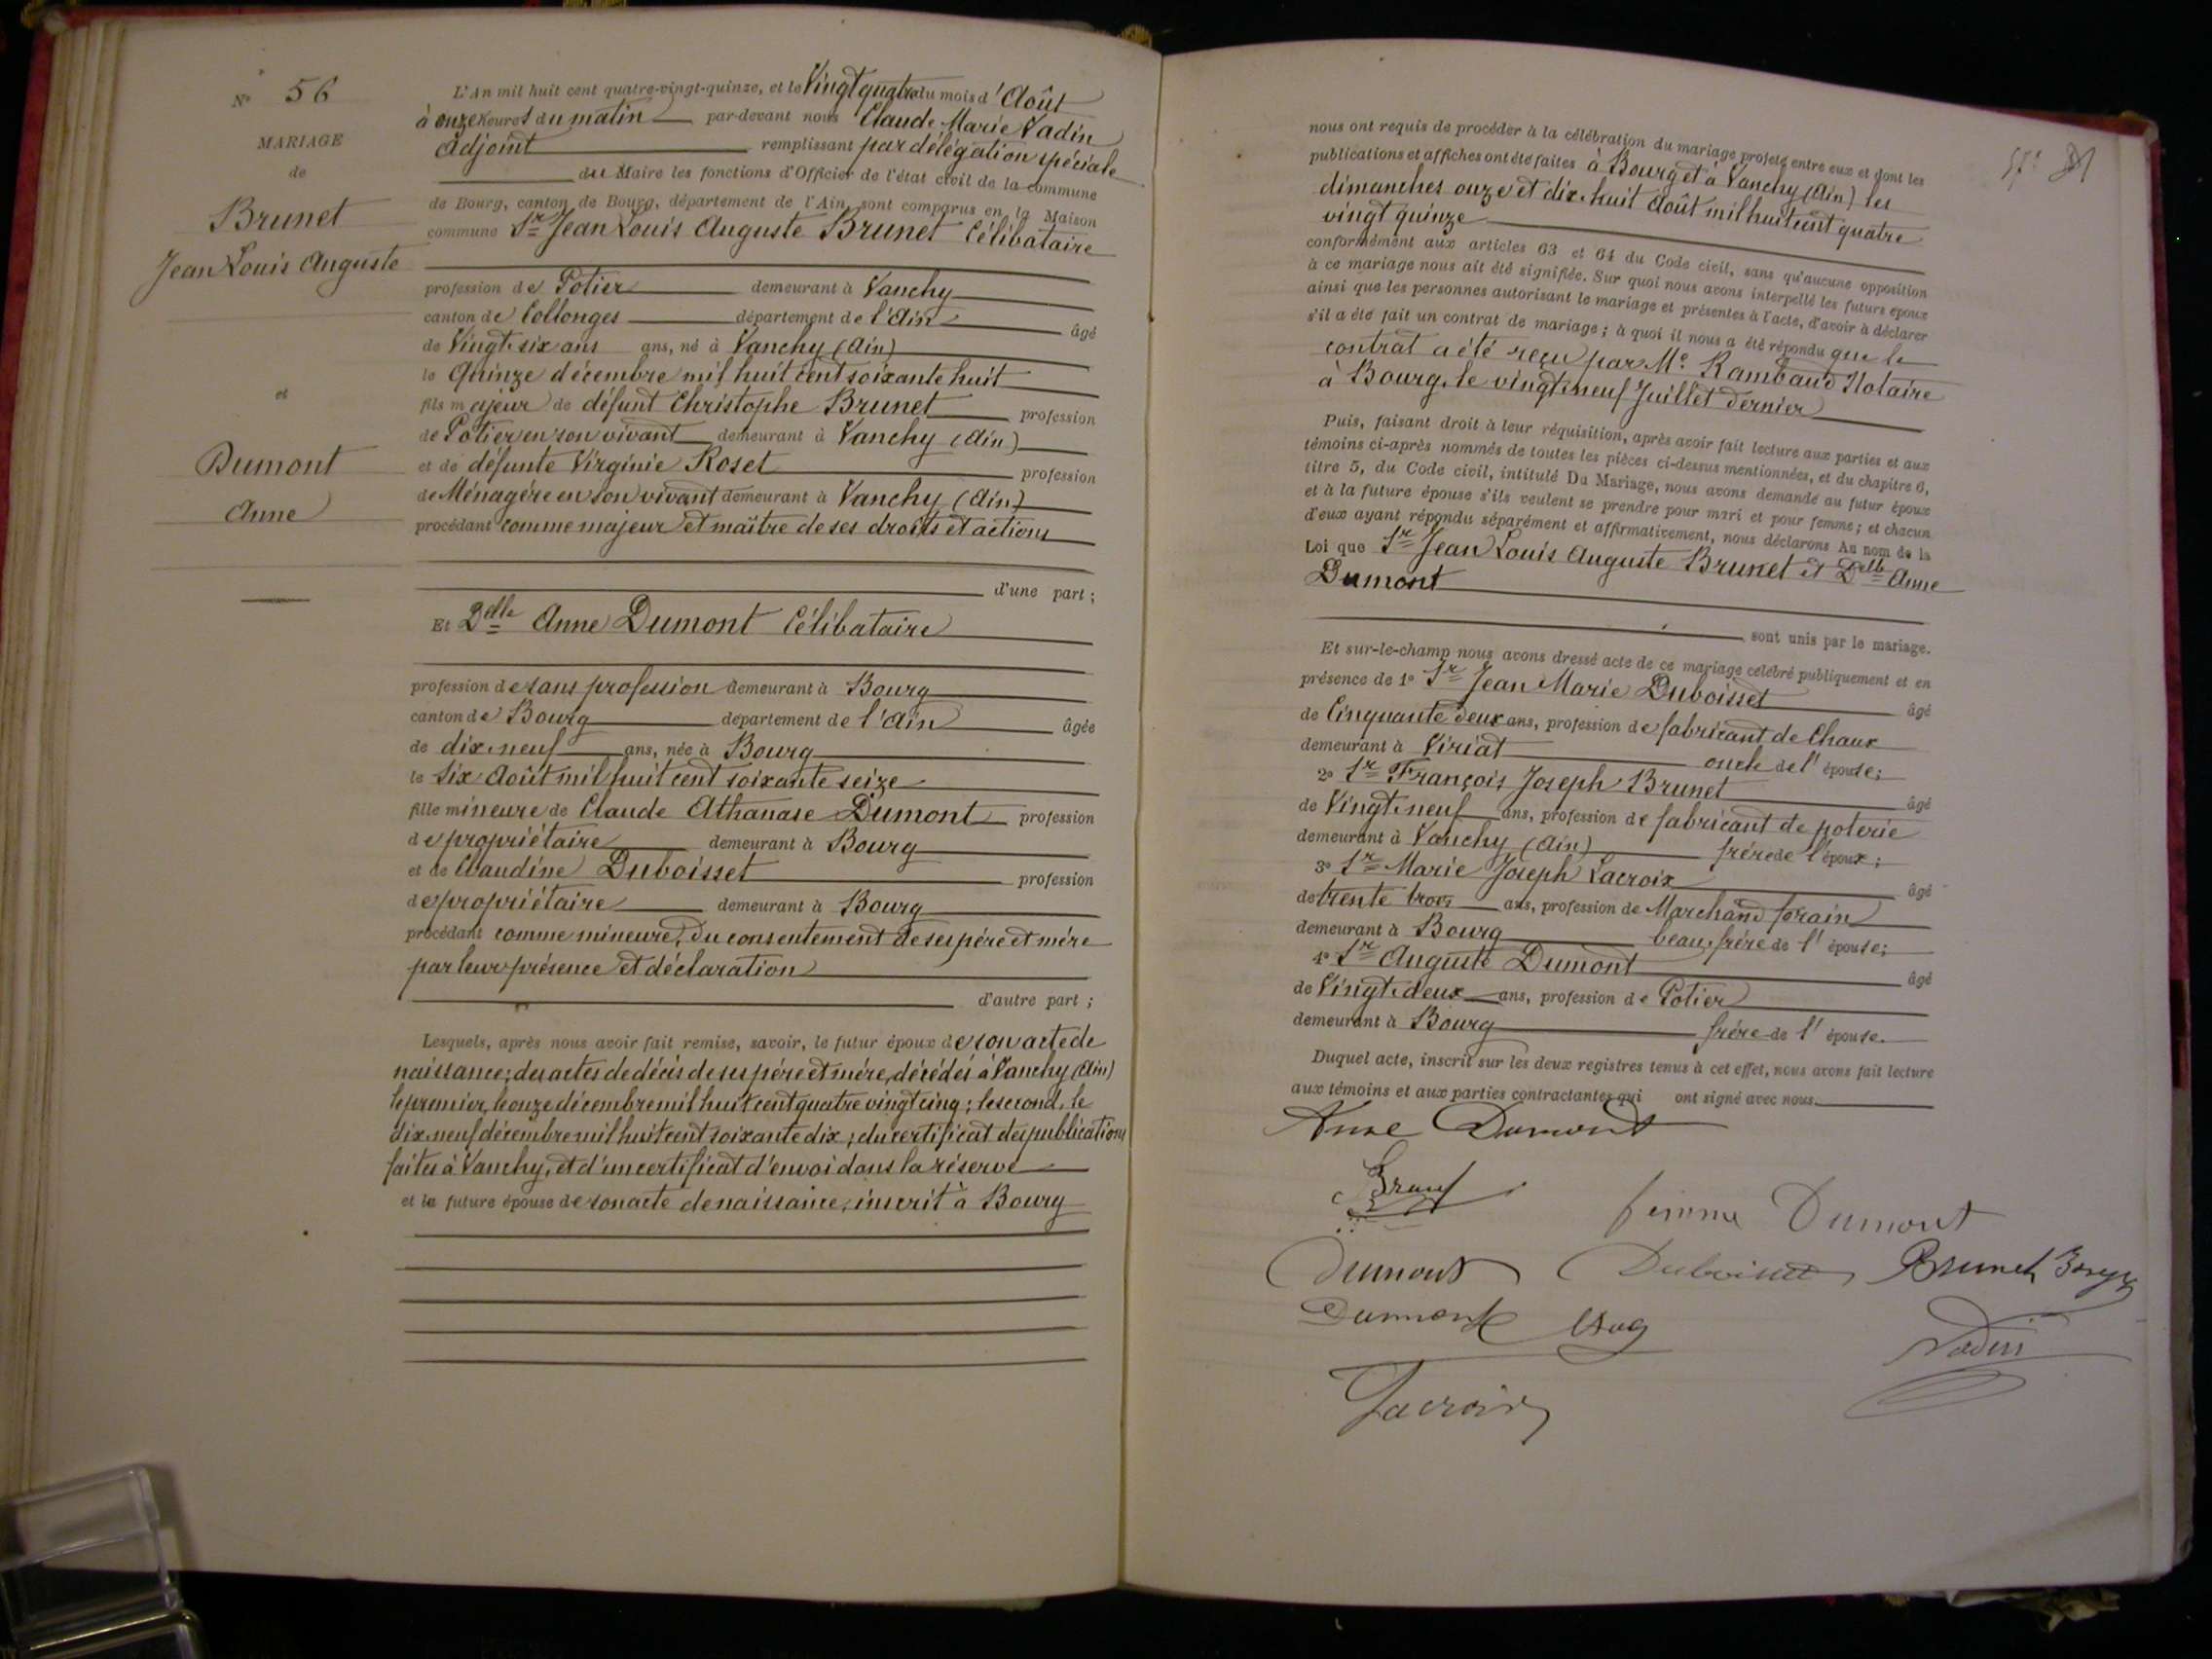 N° 56
MARIAGE
de
Brunet
Jean Louis Auguste
et
Dumont
Anne
L'An mil huit cent quatre-vingt-quinze, et le Vingt quatre du mois d'Août
à onze heures du matin par-devant nous Claude Marie Vadin
adjoint remplissant par délégation spéciale
du Maire les fonctions d'Officier de l'état civil de la commune
de Bourg, canton de Bourg, département de l'Ain, sont comparus en la Maison
commune Sr Jean Louis Auguste Brunet Célibataire
profession de Potier demeurant à Vanchy
canton de Collonges département de l'Ain âgé
de Vingt-six ans ans, né à Vanchy (Ain)
le Quinze décembre mil huit cent soixante huit
fils majeur de défunt Christophe Brunet profession
de Potier en son vivant demeurant à Vanchy (Ain)
et de défunte Virginie Roset profession
de Ménagère en son vivant demeurant à Vanchy (Ain)
procédant comme majeur et maître de ses droits et actions
d'une part ;
Et Delle Anne Dumont Célibataire
profession de sans profession demeurant à Bourg
canton de Bourg département de l'Ain âgée
de dix-neuf ans, née à Bourg
le Six Août mil huit cent soixante seize
fille mineure de Claude Athanase Dumont profession
de propriétaire demeurant à Bourg
et de Claudine Duboisset profession
de propriétaire demeurant à Bourg
procédant comme mineure, du consentement de ses père et mère
par leur présence et déclaration
d'autre part ;
Lesquels, après nous avoir fait remise, savoir, le futur époux de son acte de
naissance; des actes de décès de ses père et mère, décédés à Vanchy (Ain)
le premier, le onze décembre mil huit cent quatre vingt cinq ; le second, le
dix-neuf décembre mil huit cent soixante dix ; du certificat des publications
faites à Vanchy, et d'un certificat d'envoi dans la réserve
et la future épouse de son acte de naissance, inscrit à Bourg
nous ont requis de procéder à la célébration du mariage projeté entre eux et dont les
publications et affiches ont été faites à Bourg et à Vanchy (Ain) les
dimanches onze et dix-huit Août mil huit cent quatre
vingt quinze
conformément aux articles 63 et 64 du Code civil, sans qu'aucune opposition
à ce mariage nous ait été signifiée. Sur quoi nous avons interpellé les futurs époux
ainsi que les personnes autorisant le mariage et présentes à l'acte, d'avoir à déclarer
s'il a été fait un contrat de mariage ; à quoi il nous a été répondu que le
contrat a été reçu par Me Rambaud Notaire
à Bourg, le vingt-neuf Juillet dernier
Puis, faisant droit à leur réquisition, après avoir fait lecture aux parties et aux
témoins ci-après nommés de toutes les pièces ci-dessus mentionnées, et du chapitre 6,
titre 5, du Code civil, intitulé Du Mariage, nous avons demandé au futur époux
et à la future épouse s'ils veulent se prendre pour mari et pour femme ; et chacun
d'eux ayant répondu séparément et affirmativement, nous déclarons Au nom de la
Loi que Sr Jean Louis Auguste Brunet et Delle Anne
Dumont
sont unis par le mariage.
Et sur-le-champ nous avons dressé acte de ce mariage célébré publiquement et en
présence de 1° Sr Jean Marie Duboisset âgé
de Cinquante deux ans, profession de fabricant de Chaux
demeurant à Viriat oncle de l'épouse ;
2° Sr François Joseph Brunet âgé
de Vingt-neuf ans, profession de fabricant de poterie
demeurant à Vanchy (Ain) frère de l'époux ;
3° Sr Marie Joseph Lacroix âgé
de trente trois ans, profession de Marchand forain
demeurant à Bourg beau-frère de l'épouse ;
4° Sr Auguste Dumont âgé
de Vingt-deux ans, profession de Potier
demeurant à Bourg frère de l'épouse.
Duquel acte, inscrit sur les deux registres tenus à cet effet, nous avons fait lecture
aux témoins et aux parties contractantes qui ont signé avec nous.
Anne Dumont
femme Dumont
Dumont Duboisset Brunet
Dumont
Vadin
Lacroix